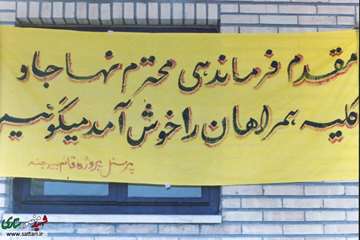 مقدم فرماندهی محترم نهاجا و
کلیه همراهان را خوش آمد میگوئیم
پرسنل پروژه قائم
ستاری
www.sattari.ir